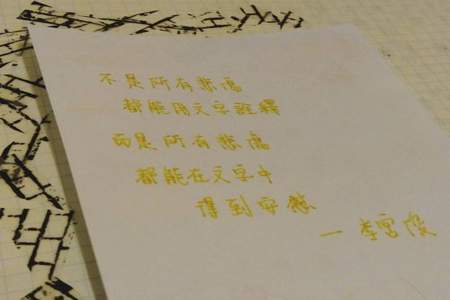 不是所有悲傷
都能用文字詮釋
而是所有悲傷
都能在文字中
得到安慰
— 李宮俊